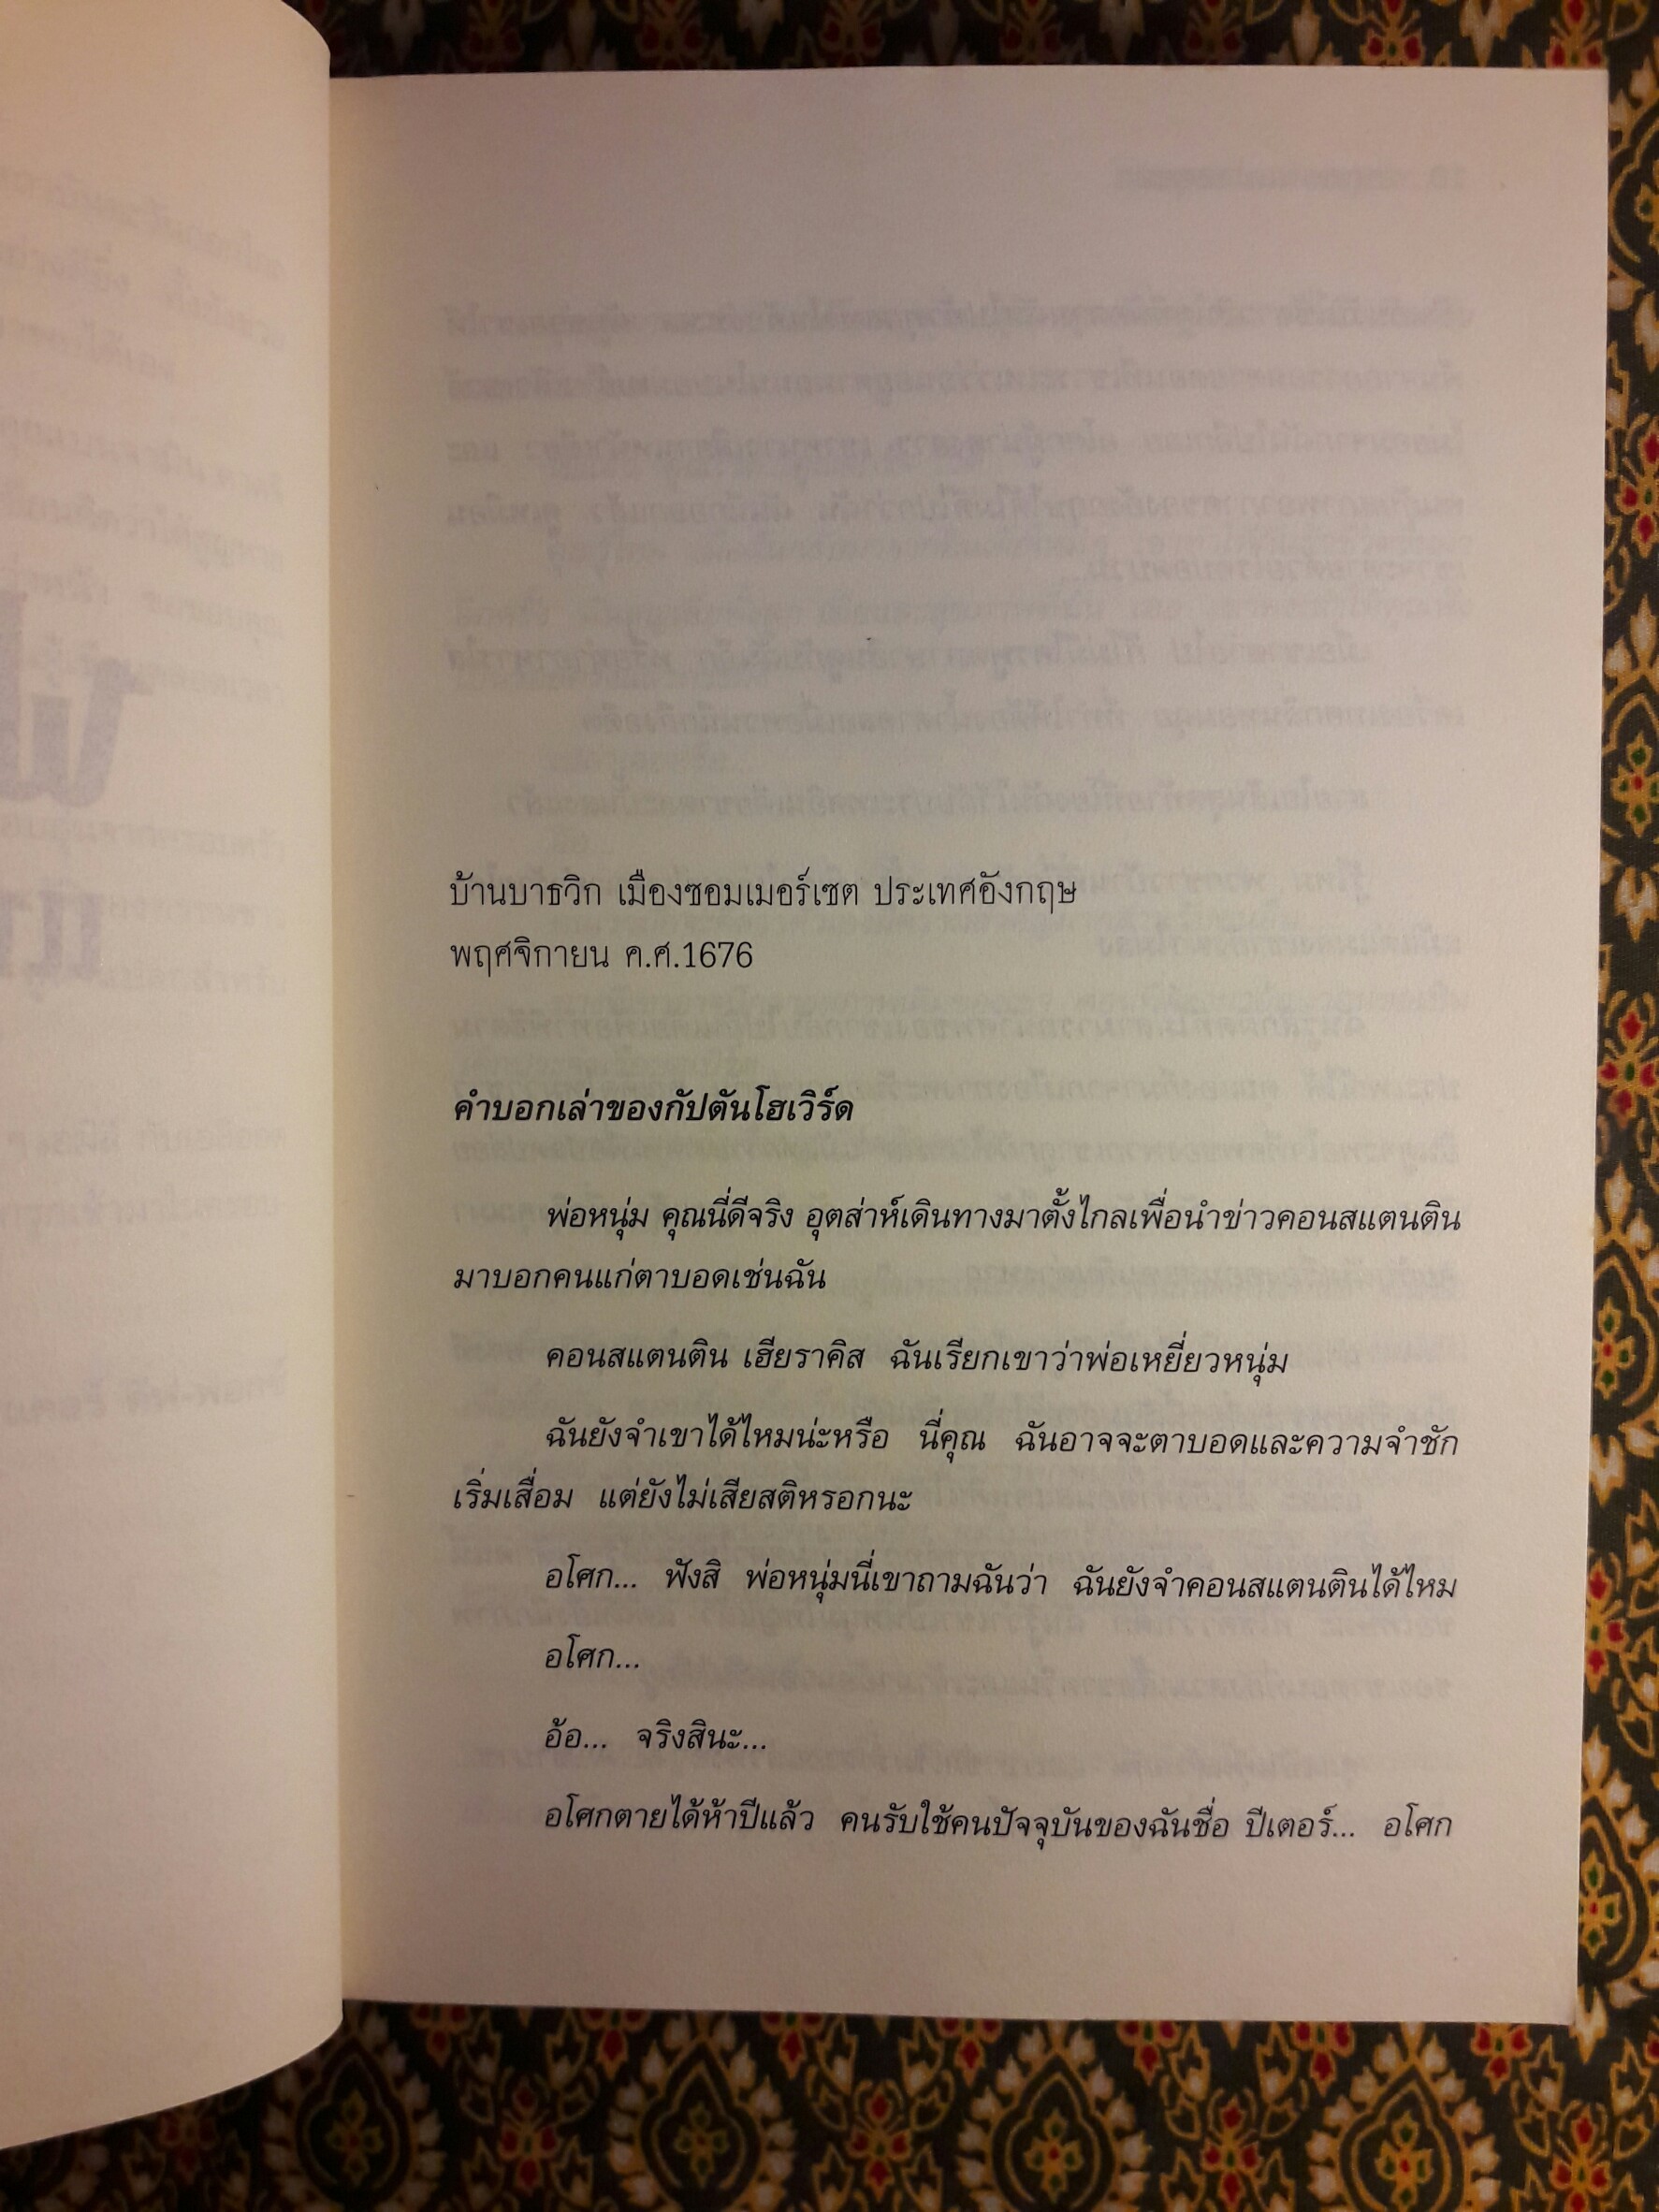 บ้านบาธวิก เมืองซอมเมอร์เซต ประเทศอังกฤษ
พฤศจิกายน ค.ศ.1676
คำบอกเล่าของกัปตันโฮเวิร์ด
พ่อหนุ่ม คุณนี่ดีจริง อุตส่าห์เดินทางมาตั้งไกลเพื่อนำข่าวคอนสแตนติน
มาบอกคนแก่ตาบอดเช่นฉัน
คอนสแตนติน เฮียราคิส ฉันเรียกเขาว่าพ่อเหยี่ยวหนุ่ม
ฉันยังจำเขาได้ไหมน่ะหรือ นี่คุณ ฉันอาจจะตาบอดและความจำชัก
เริ่มเสื่อม แต่ยังไม่เสียสติหรอกนะ
อโศก... ฟังสิ พ่อหนุ่มนี่เขาถามฉันว่า ฉันยังจำคอนสแตนตินได้ไหม
อโศก...
อ้อ... จริงสินะ...
อโศกตายได้ห้าปีแล้ว คนรับใช้คนปัจจุบันของฉันชื่อ ปีเตอร์... อโศก